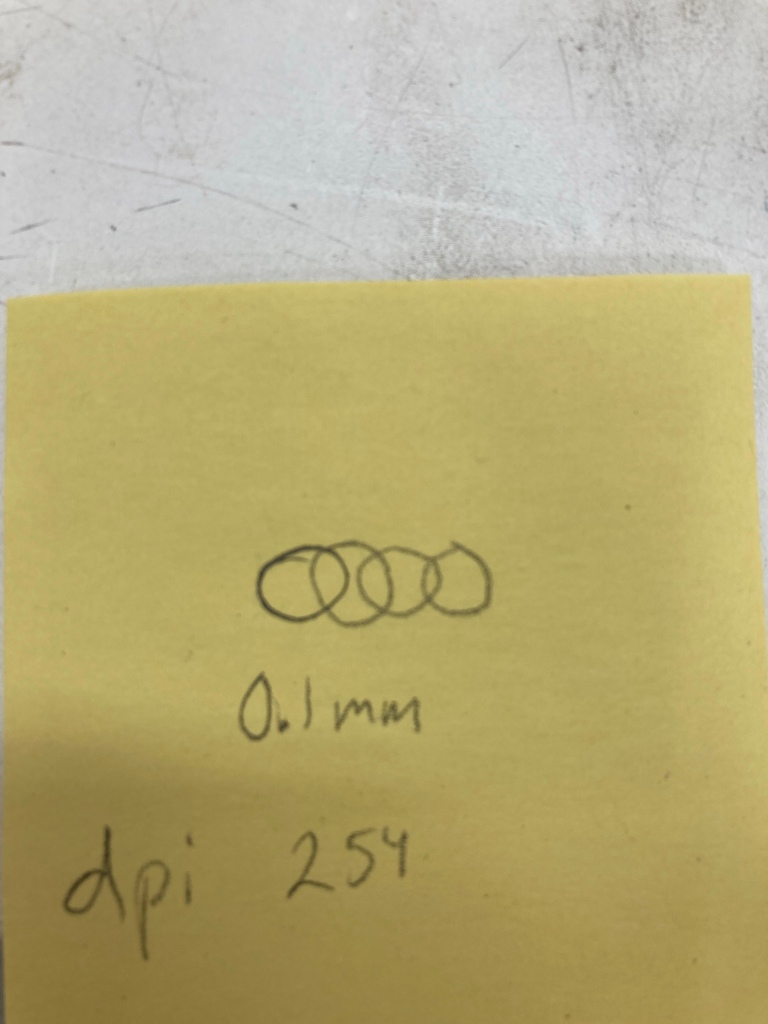 0.1mm
dpi 254